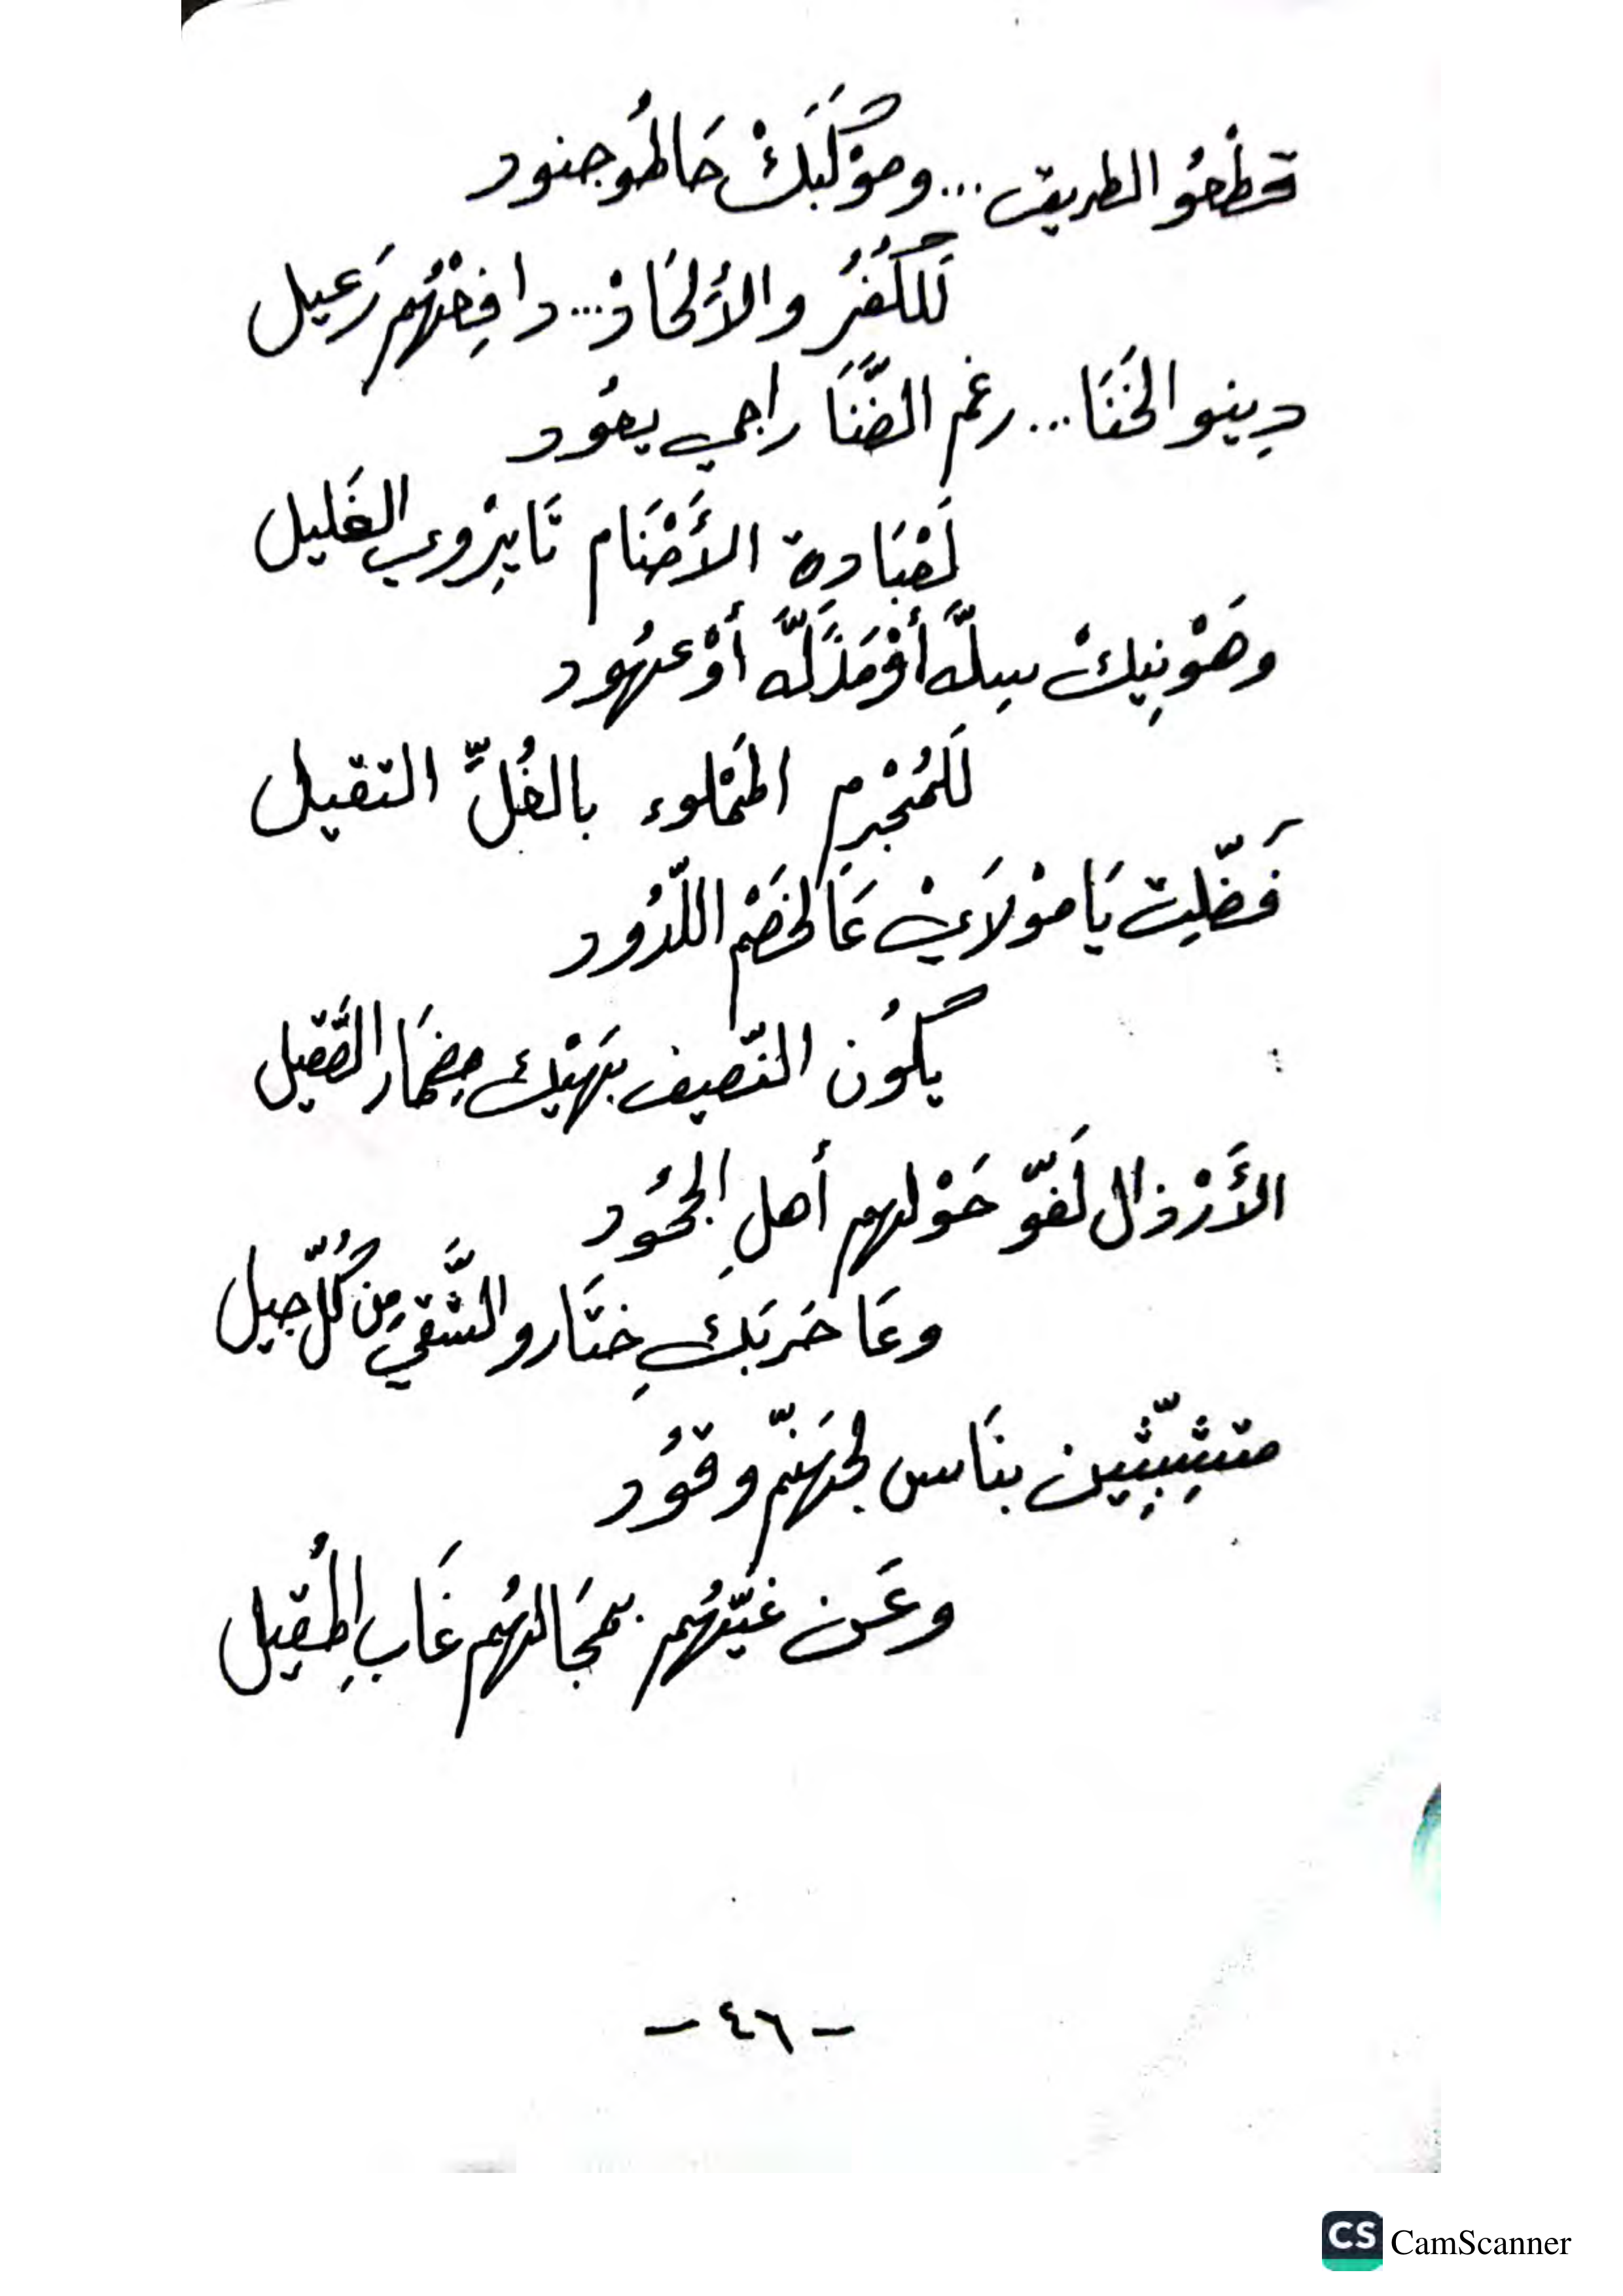 قطْعُو الطريق... ومَوْكَبَكْ حَاطُو جنود
لَلكُفُرْ والأَلحَادْ... دافِعْتُهُم رَعيل
دِينو الخَنَا... رغم الضَّنَا راجي يعُود
لَعْبَادة الأَصْنَام تَا يِرْوي الغَليل
وهَوْنِيكْ سِلَّه أوْ مَذَلَّه أوْ عهُود
لَلمُجْرِم المَمْلوء بالغُلِّ التقيل
فَضَّلِت يَا مَوْلَايْ عَالخَصْم اللّدُود
يكُون النّصيف بَهَيْك مِضمَار الصَّقيل
الأَرْذال لَفّو حَوْلهم أهلِ الجحُود
وعَا حَربَك خِتَارو الشَّقي مِن كُلّ جيل
متشِبِّثِين بنَاس لجهَنّم وقُود
وعَن غيّهُم بمجَالهُم غَابِ المُقيل
- ٤٦ -
CS CamScanner